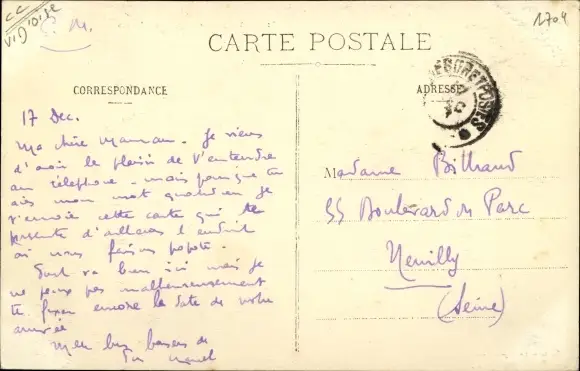 C.M.
1704
CARTE POSTALE
CORRESPONDANCE
ADRESSE
17 Dec.
Ma chère Maman. Je viens
d'avoir le plaisir de t'entendre
au téléphone - mais pour que tu
aies mon mot quotidien je
t'envoie cette carte qui te
présente d'ailleurs l'endroit
où nous faisons popote.
Tout va bien ici mais je
ne peux pas malheureusement
te fixer encore la date de notre
arrivée
Mille bons baisers de
Ton
Madame Billaud
55 Boulevard du Parc
Neuilly
(Seine)